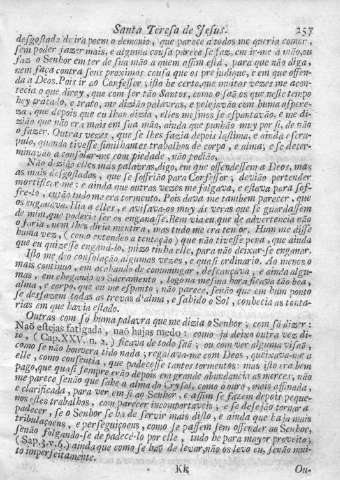 Santa Teresa de Jesus. 257
desgostada de ira poem o demonio, que parece a todos me queria comer,
sem poder fazer mais, e alguma cousa parece se faz, em ir-me à mão,ou
faz o Senhor em ter de sua mão a quem assim está, para que não diga,
nem faça contra seus proximos cousa que os prejudique, e em que offen-
da a Deos. Pois ir ao Confessor, isto he certo, que muitas vezes me acon-
tecia o que direy, que com ser tão santos, como o são os que neste tempo
hey tratado, e trato, me dizião palavras, e pelejavão com huma aspere-
za, que depois que eu lhas dizia, elles mesmos se espantavão, e me di-
zião que não era mais em sua mão, ainda que punhão muy por si, de não
o fazer. Outras vezes, que se lhes fazia depois lastima, e ainda escru-
pulo, quando tivesse similhantes trabalhos de corpo, e alma, e se deter-
minavão a consolar-me com piedade, não podião.
Não dizião elles más palavras, digo, em que offendessem a Deos, mas
as mais desgostadas, que se soffrião para Confessor; devião pertender
mortificar-me: e ainda que outras vezes me folgava, e estava para sof-
frelo, então tudo me era tormento. Pois dava me tambem parecer, que
os enganava. Hia a elles, e avisava-os muy às veras que se guardassem
de mim, que poderia ser os enganasse. Bem via eu que de advertencia não
o faria, nem lhes diria mentira, mas tudo me era temor. Hum me disse
huma vez, (como entendeo a tentação) que não tivesse pena, que ainda
que eu quizesse enganalo, sizo tinha elle, para não deixar-se enganar.
Isto me deo consolação, algumas vezes, e quasi ordinario, ao menos o
mais continuo, em acabando de commungar, descançava; e ainda algu-
mas, em chegando ao Sacramento, logo na mesma hora ficava tão boa,
alma, e corpo, que eu me espanto; não parece, senão que em hum ponto
se desfazem todas as trevas d'alma, e sahido o Sol, conhecia as tonta-
rias em que havia estado.
Outras com só huma palavra que me dizia o Senhor; com só dizer:
Naõ estejas fatigada, naõ hajas medo: como já deixo outra vez di-
to, (Cap.XXV. n. 2.) ficava de todo sãa; ou com ver alguma visaõ,
como se não houvera tido nada; regalava-me com Deos, queixava-me a
elle, como consentia, que padecesse tantos tormentos: mas isto era bem
pago, que quasi sempre erão depois em grande abundancia as mercès; não
me parece senão que sahe a alma do Crysol, como o ouro, mais affinada,
e clarificada, para ver em si ao Senhor, e assim se fazem depois peque-
nos estes trabalhos, com parecer incomportaveis; e se desejão tornar a
padecer, se o Senhor se ha de servir mais disso, e ainda que haja mais
tribulaçoens, e perseguiçoens, como se passem sem offender ao Senhor,
senão folgando-se de padecê-lo por elle, tudo he para mayor proveito;
(Sap. 3. v. 6.) ainda que como se haõ de levar, não os levo eu, senão mui-
to imperfeitamente.
Kk Ou-